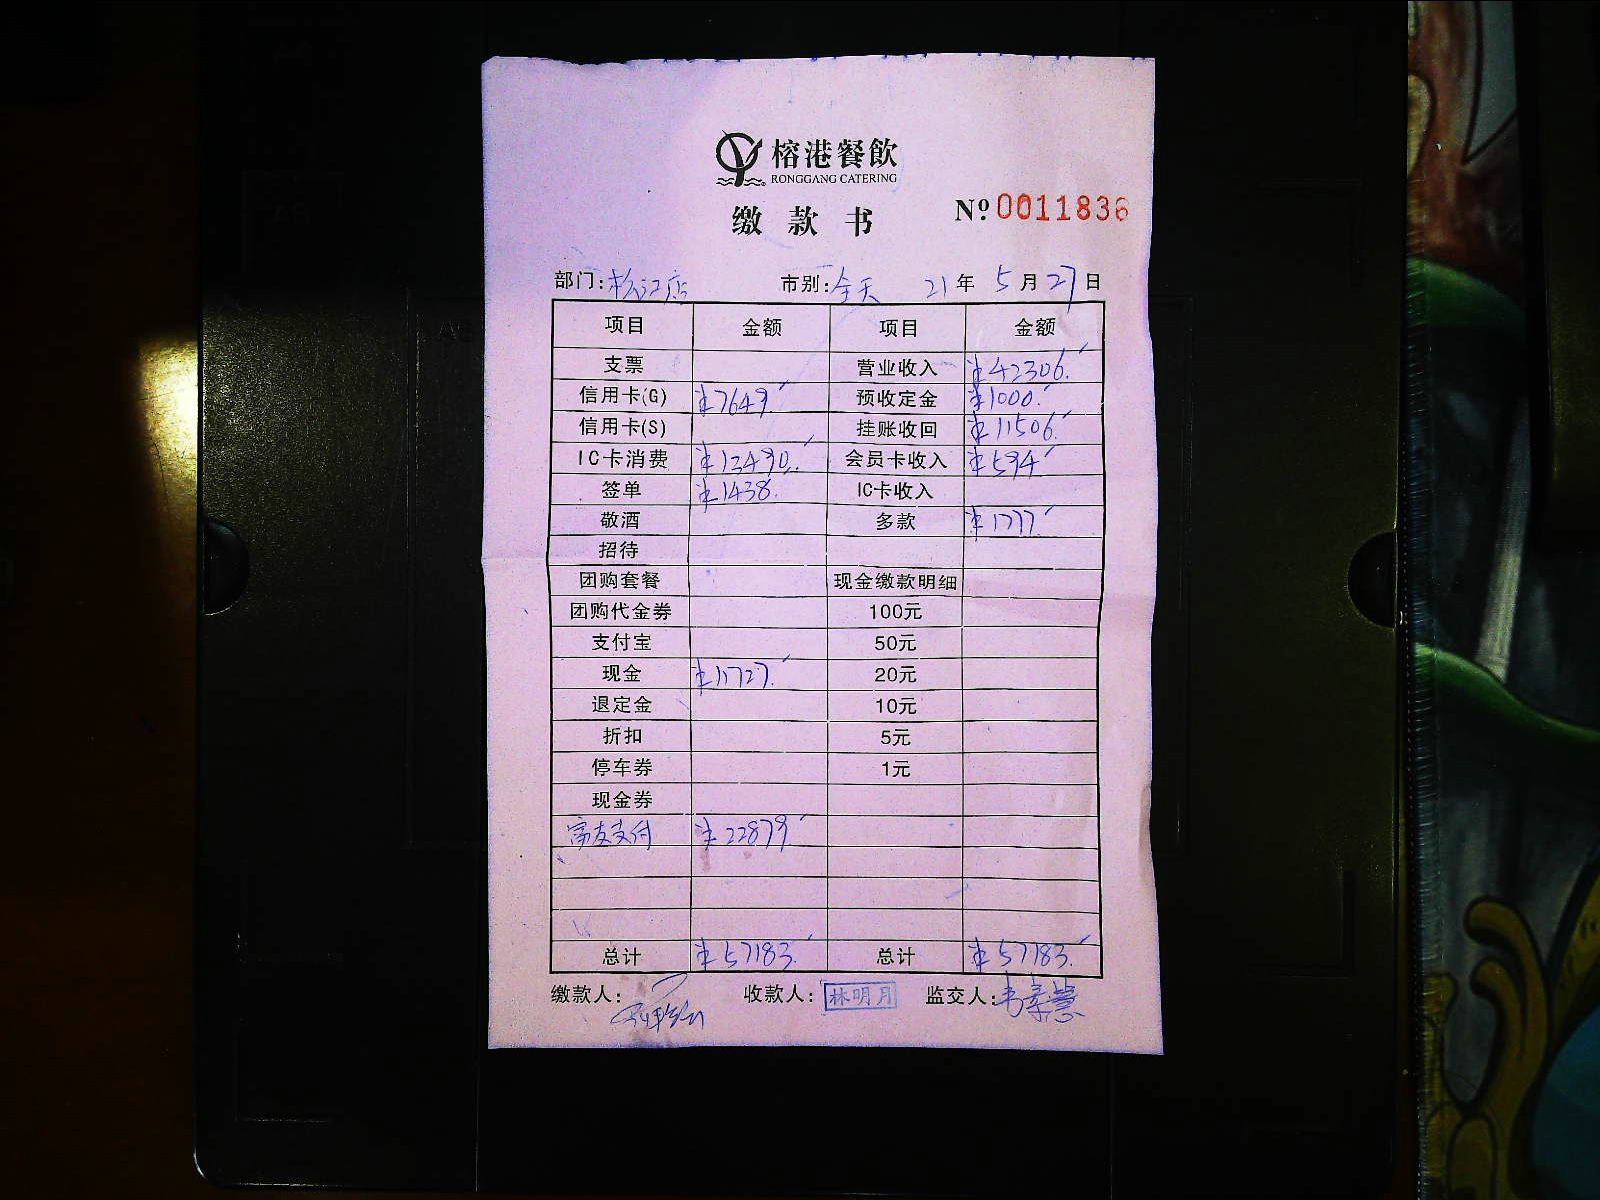 榕港餐飲
RONGGANG CATERING
缴款书
Nº 0011836
部门:松江店 市别:全天 21年5月27日
项目 金额 项目 金额
支票 营业收入 ¥42306.
信用卡(G) ¥7649. 预收定金 ¥1000.
信用卡(S) 挂账收回 ¥11506.
IC卡消费 ¥13490. 会员卡收入 ¥594
签单 ¥1438. IC卡收入
敬酒 多款 ¥1777
招待
团购套餐 现金缴款明细
团购代金券 100元
支付宝 50元
现金 ¥11727. 20元
退定金 10元
折扣 5元
停车券 1元
现金券
富友支付 ¥22879.
总计 ¥57183. 总计 ¥57183.
缴款人: 收款人:林明月 监交人: